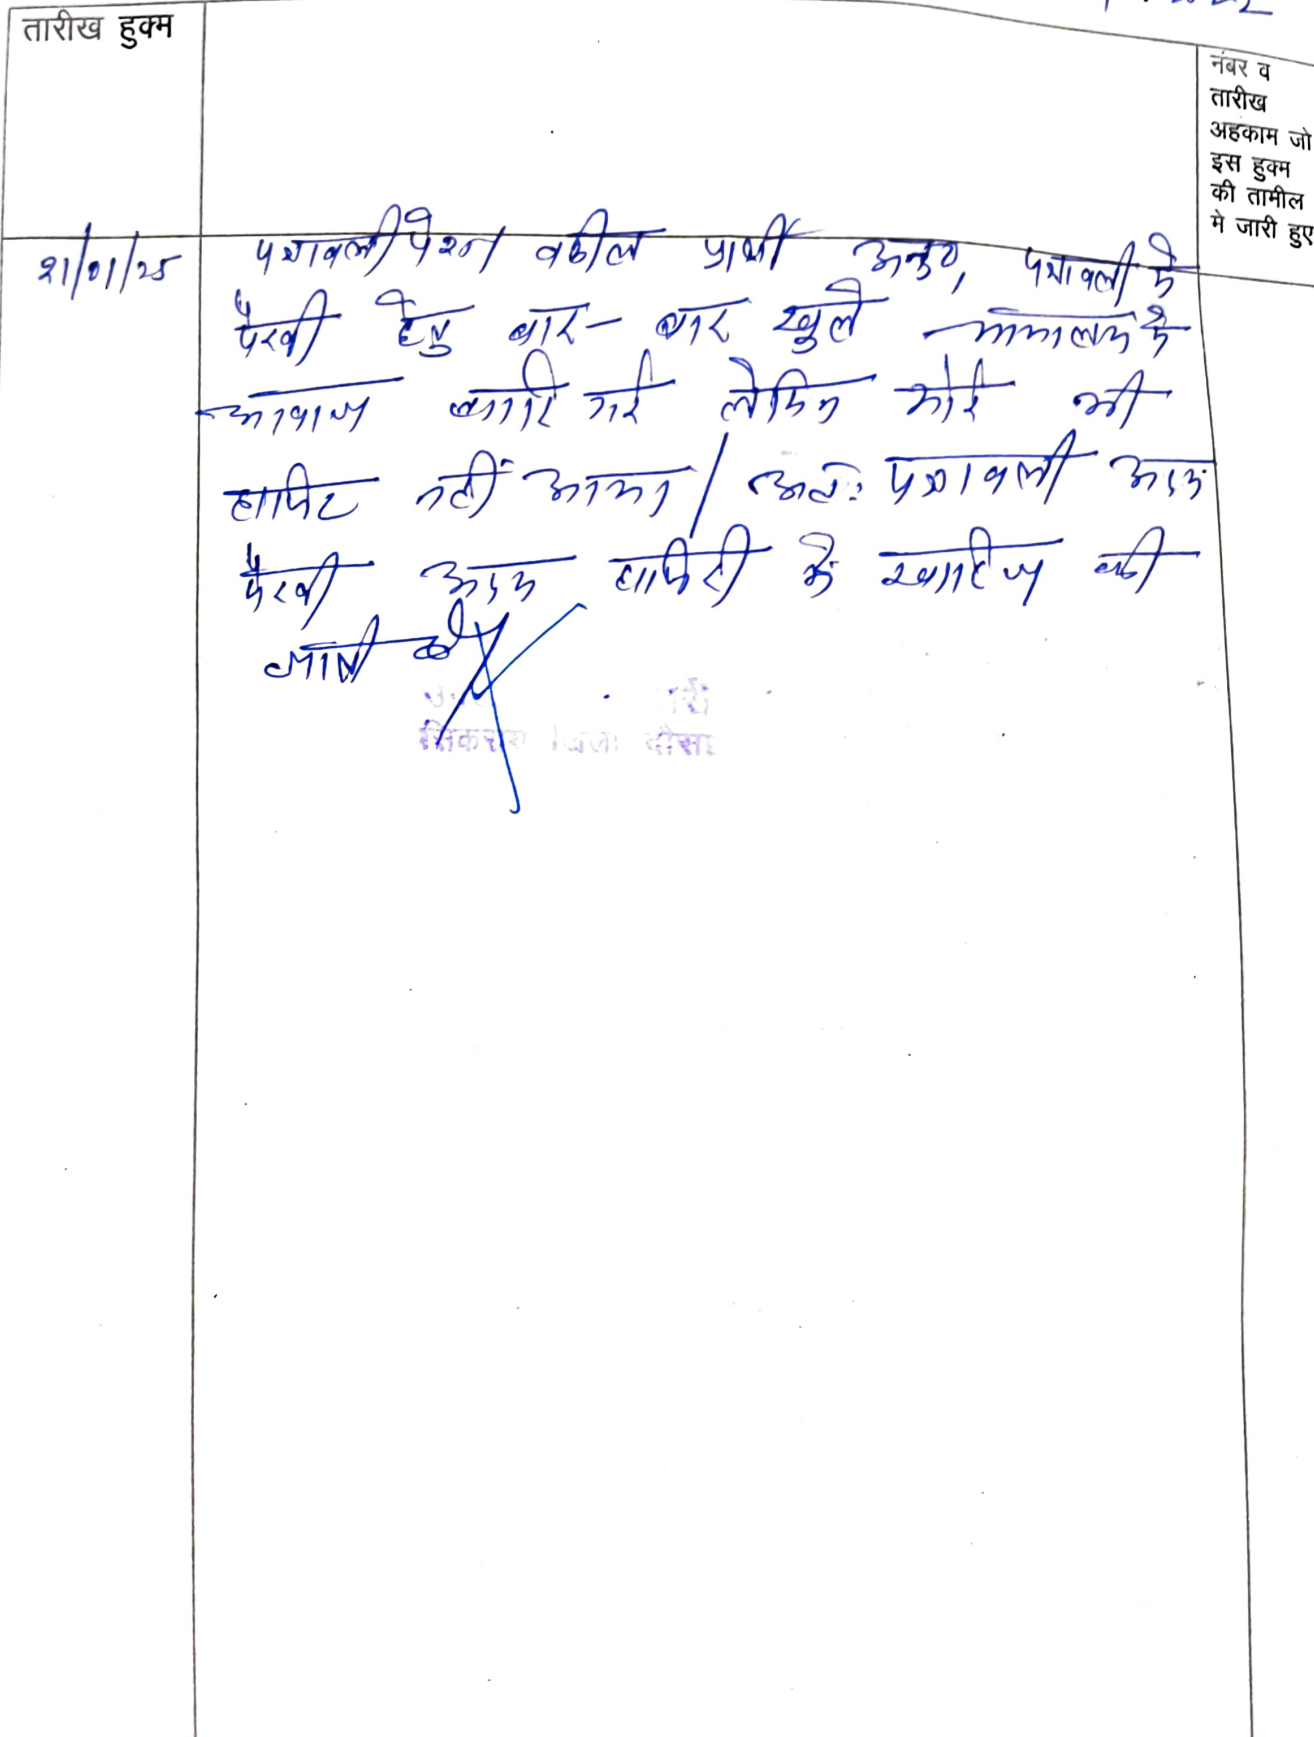 तारीख हुक्म
नंबर व
तारीख
अहकाम जो
इस हुक्म
की तामील
मे जारी हुए
21/01/25
पत्रावली पेश। वकील प्रार्थी अनु०, पत्रावली में
पैरवी हेतु बार-बार खुले न्यायालय में
आवाज लगाई गई लेकिन कोई भी
हाजिर नहीं आया। अतः पत्रावली अदम
पैरवी अदम हाजिरी में खारिज की
जाती है।
सिकराय जिला दौसा